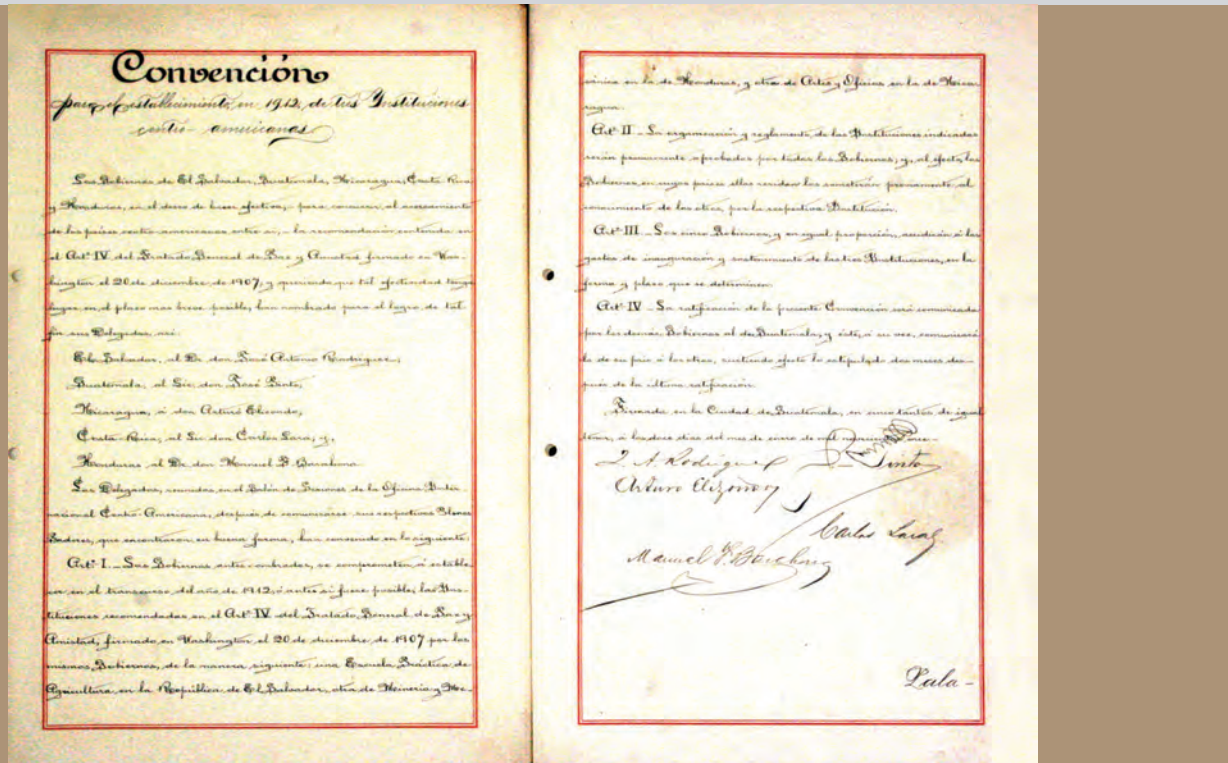 Convención
para el establecimiento, en 1912, de tres Instituciones
centro-americanas
Los Gobiernos de El Salvador, Guatemala, Nicaragua, Costa Rica
y Honduras, en el deseo de hacer efectiva, - para conducir al acercamiento
de los países centro-americanos entre sí, - la recomendación contenida en
el Artº IV del Tratado General de Paz y Amistad firmado en Was-
hington el 20 de diciembre de 1907, y queriendo que tal efectividad tenga
lugar en el plazo mas breve posible, han nombrado para el logro de tal
fin sus Delegados, así:
El Salvador, al Dr. don José Antonio Rodríguez;
Guatemala, al Lic. don José Pinto;
Nicaragua, a don Arturo Elizondo;
Costa-Rica, al Lic. don Carlos Lara; y,
Honduras al Dr. don Manuel F. Barahona.
Los Delegados, reunidos en el Salón de Sesiones de la Oficina Inter-
nacional Centro-Americana, después de comunicarse sus respectivos Plenos
Poderes, que encontraron en buena forma, han convenido en lo siguiente:
Artº I. - Los Gobiernos antes nombrados, se comprometen á estable-
cer en el transcurso del año de 1912, ó antes si fuere posible, las Ins-
tituciones recomendadas en el Artº IV del Tratado General de Paz y
Amistad, firmado en Washington el 20 de diciembre de 1907 por los
mismos Gobiernos, de la manera siguiente: una Escuela Práctica de
Agricultura en la República de El Salvador, otra de Minería y Me-
cánica en la de Honduras, y otra de Artes y Oficios en la de Nica-
ragua.
Artº II - La organización y reglamento de las Instituciones indicadas
serán previamente aprobados por todos los Gobiernos; y, al efecto, los
Gobiernos en cuyos países ellas residan los someterán previamente al
conocimiento de los otros, por la respectiva Institución.
Artº III - Los cinco Gobiernos, y en igual proporción, acudirán á los
gastos de inauguración y sostenimiento de las tres Instituciones, en la
forma y plazo que se determinen.
Artº IV - La ratificación de la presente Convención será comunicada
por los demás Gobiernos al de Guatemala, y éste, á su vez, comunicará
la de su país á los otros, surtiendo efecto lo estipulado dos meses des-
pués de la última ratificación.
Firmada en la Ciudad de Guatemala, en cinco tantos de igual
tenor, a los doce días del mes de enero de mil novecientos once.-
J. A. Rodríguez
Pinto
Arturo Elizondo
Carlos Lara
Manuel F. Barahona